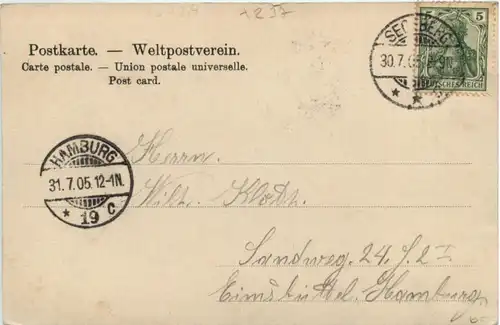 1257
Postkarte. — Weltpostverein.
Carte postale. — Union postale universelle.
Post card.
SEGEBERG
30.7.05. 8-9N.
5 5
DEUTSCHES REICH
HAMBURG
31.7.05.12-1N.
* 19 C
Herrn
Wilh. Klodt.
Sandweg. 24. I
Eimsbüttel. Hamburg